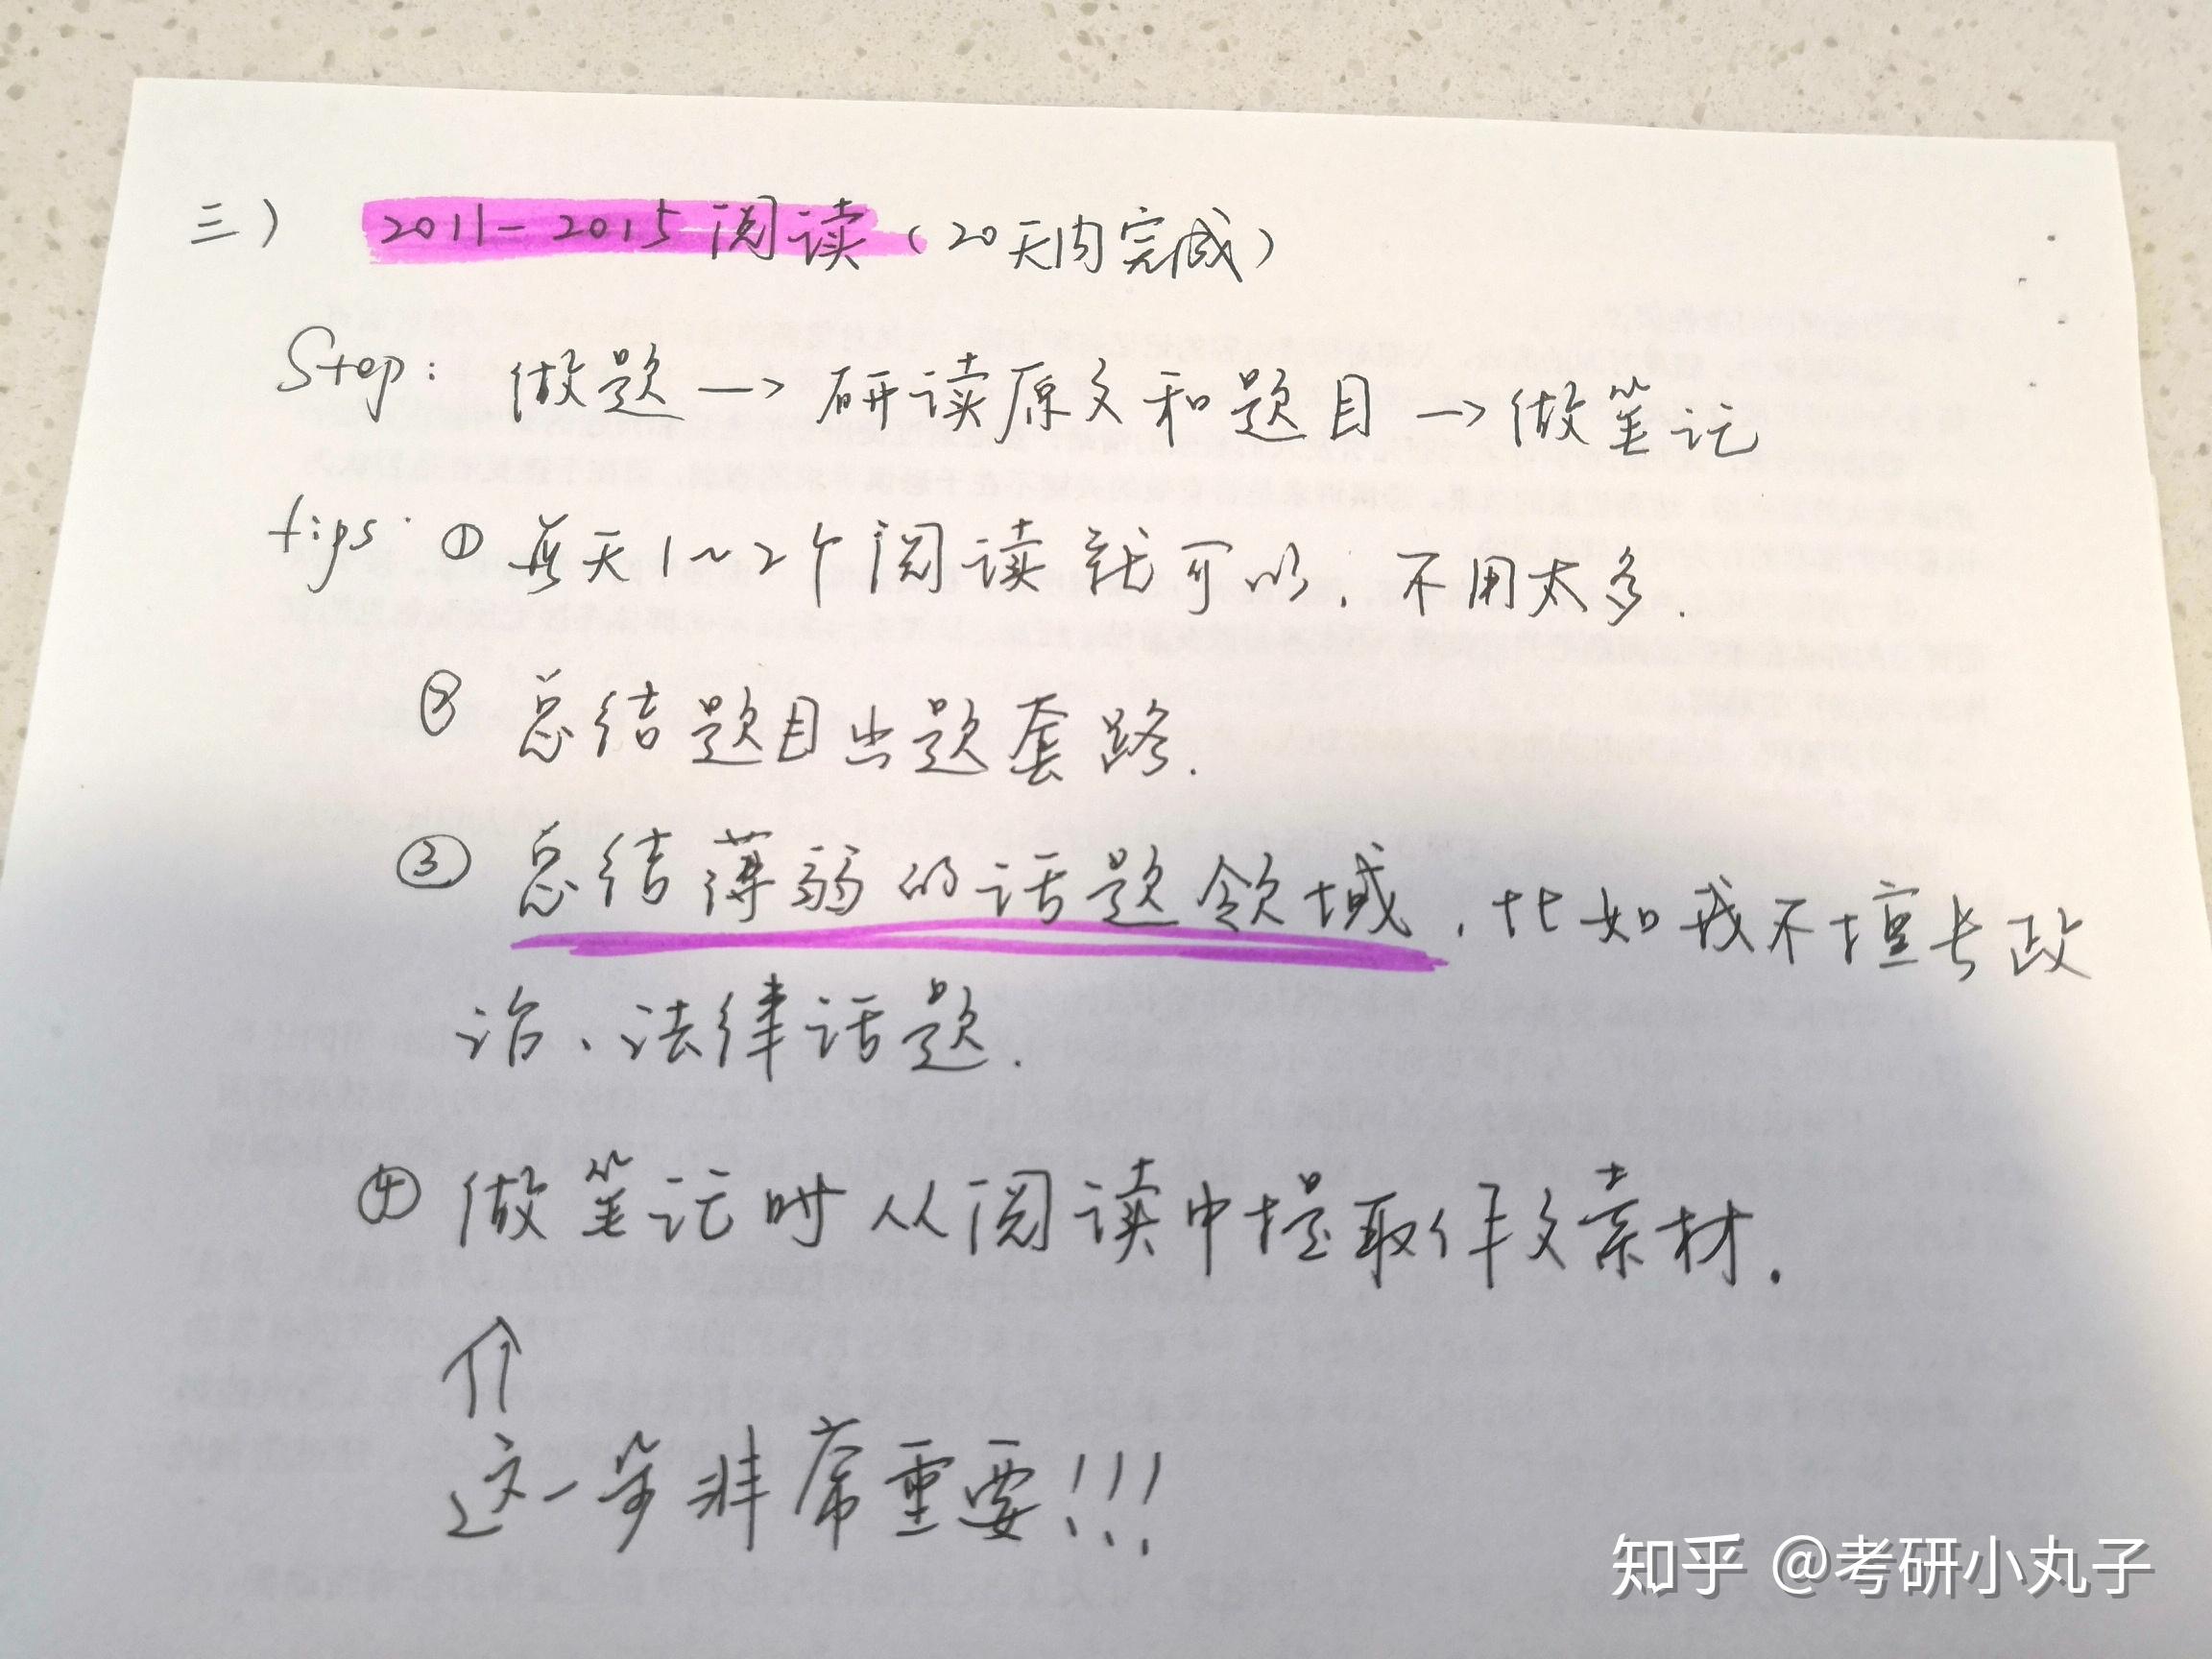 三） 2011-2015 阅读（20天内完成）
Step: 做题 → 研读原文和题目 → 做笔记
tips: ① 每天1~2个阅读就可以，不用太多.
② 总结题目出题套路.
③ 总结薄弱的话题领域，比如我不擅长政
治、法律话题.
④ 做笔记时从阅读中提取作文素材.
⇑
这一步非常重要!!!
知乎 @考研小丸子